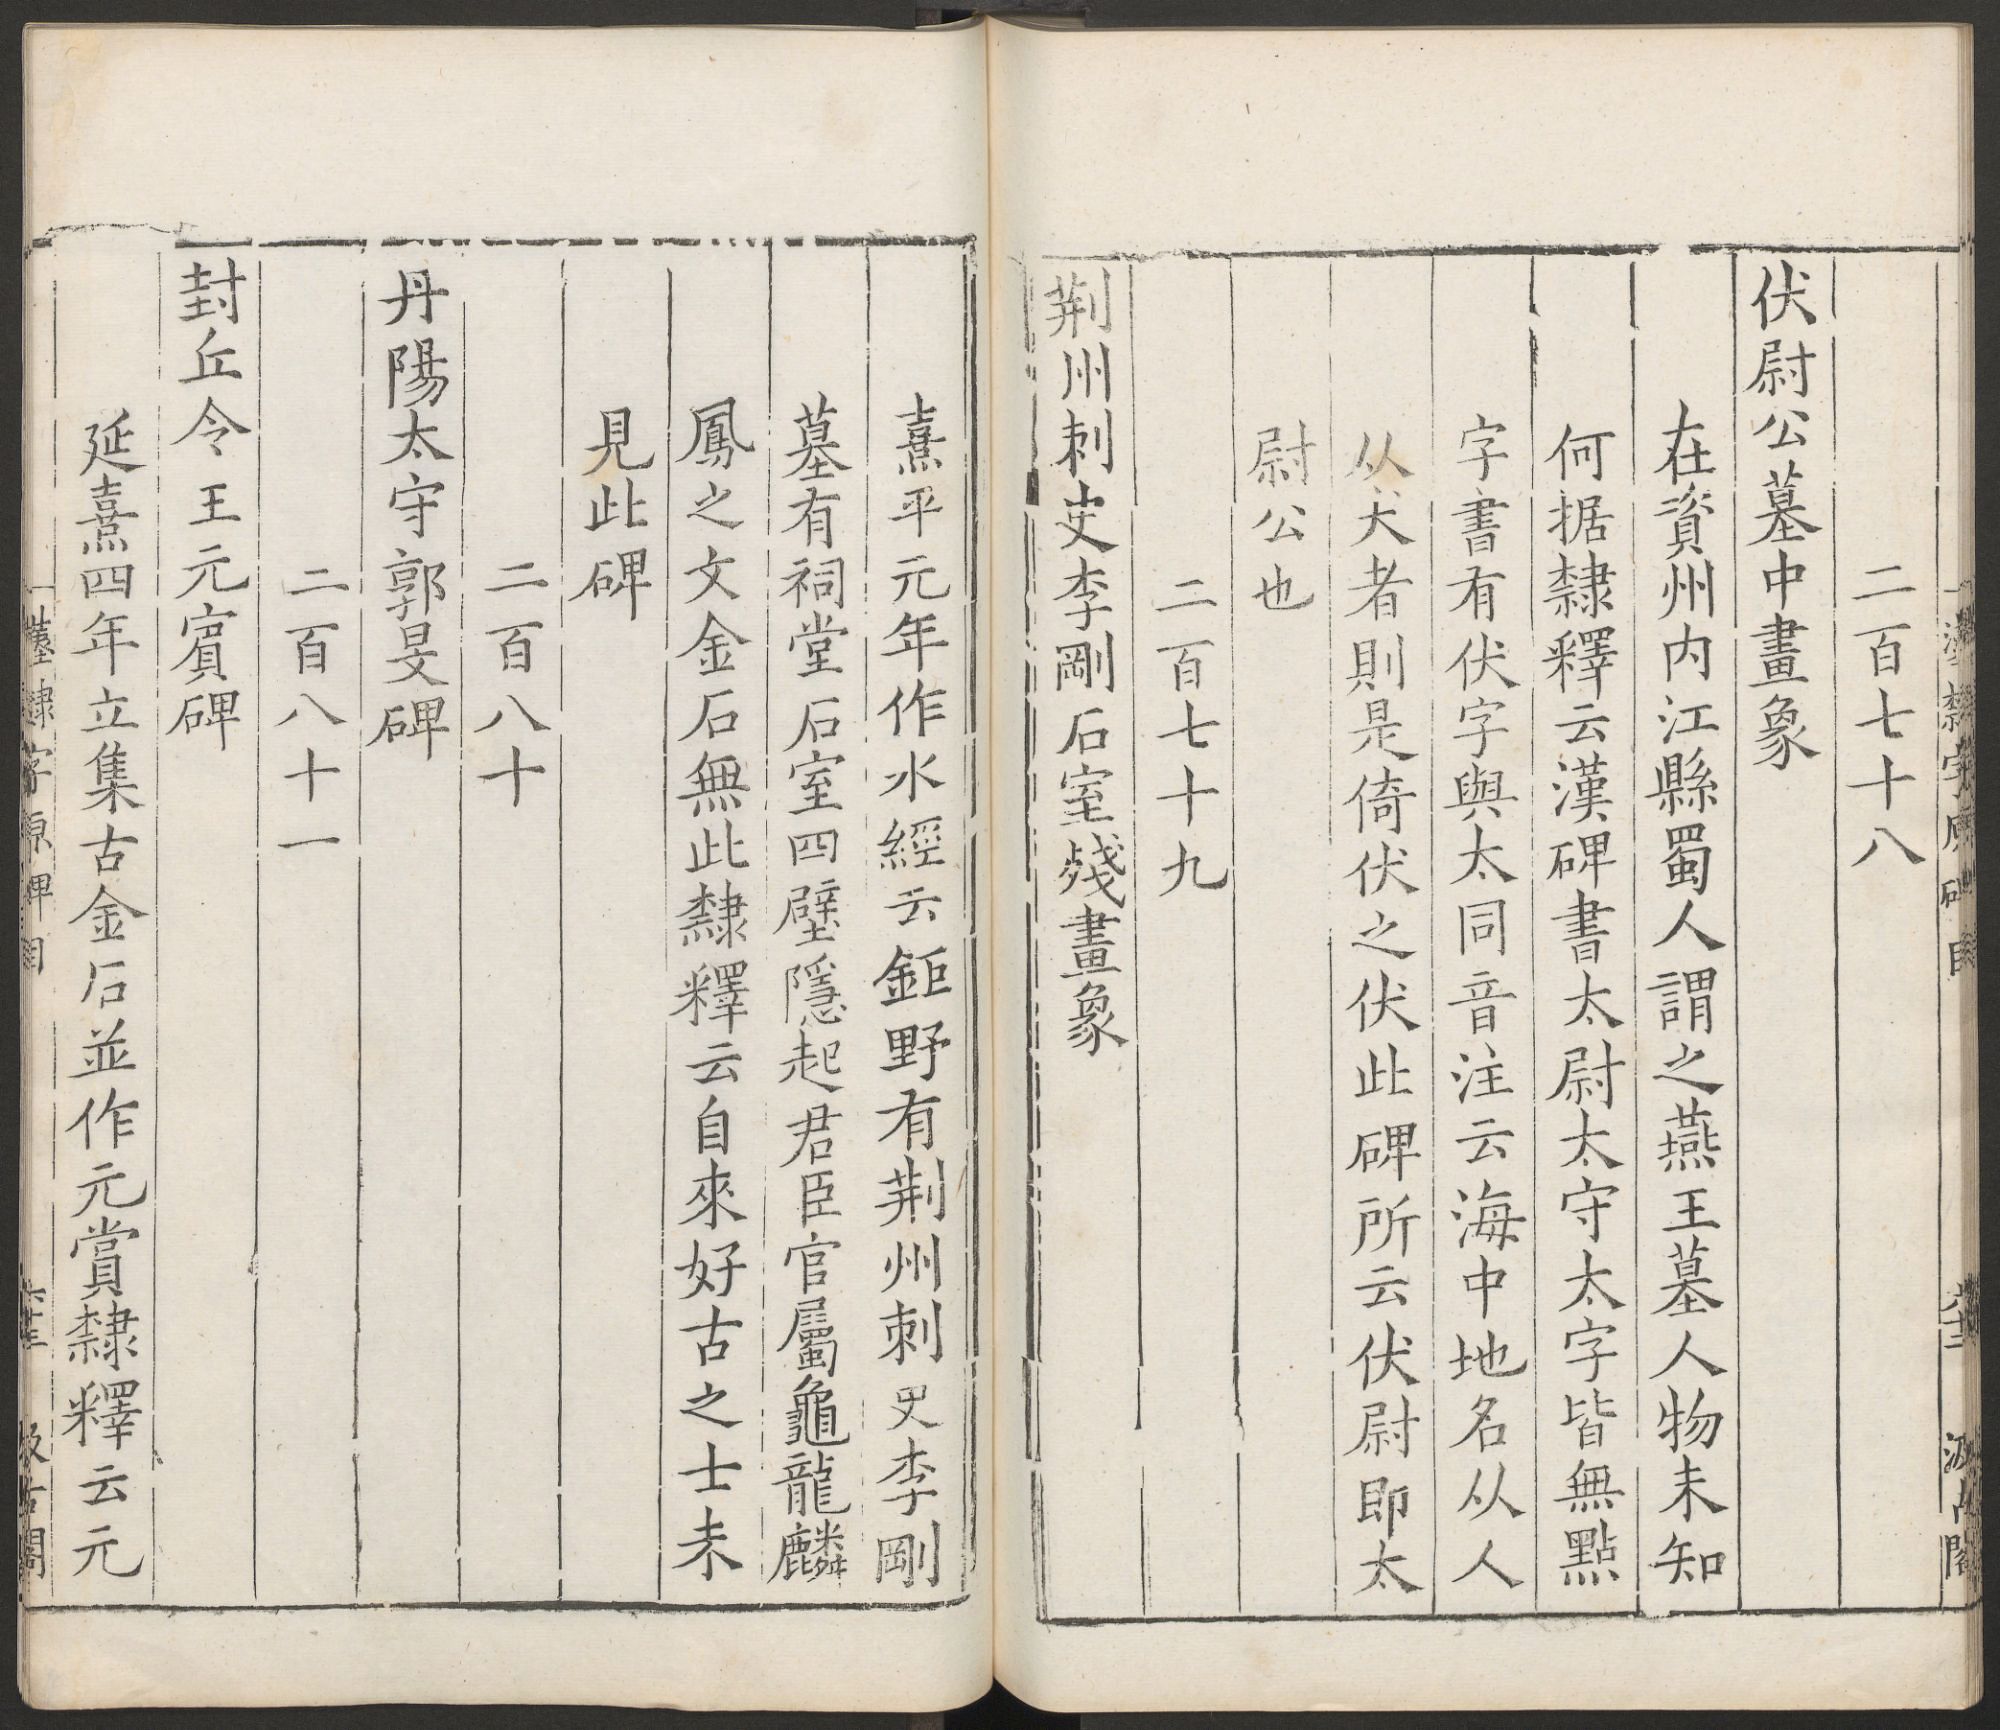 二百七十八
伏尉公墓中畫象
在資州内江縣蜀人謂之燕王墓人物未知
何据隸釋云漢碑書太尉太守太字皆無點
字書有伏字與太同音注云海中地名从人
从犬者則是倚伏之伏此碑所云伏尉即太
尉公也
二百七十九
荆州刺史李剛石室殘畫象
熹平元年作水經云鉅野有荆州刺史李剛
墓有祠堂石室四壁隱起君臣官屬龜龍麟
鳳之文金石無此隸釋云自來好古之士未
見此碑
二百八十
丹陽太守郭旻碑
二百八十一
封丘令王元賓碑
延熹四年立集古金石並作元賞隸釋云元
漢隸字原碑目
汲古閣